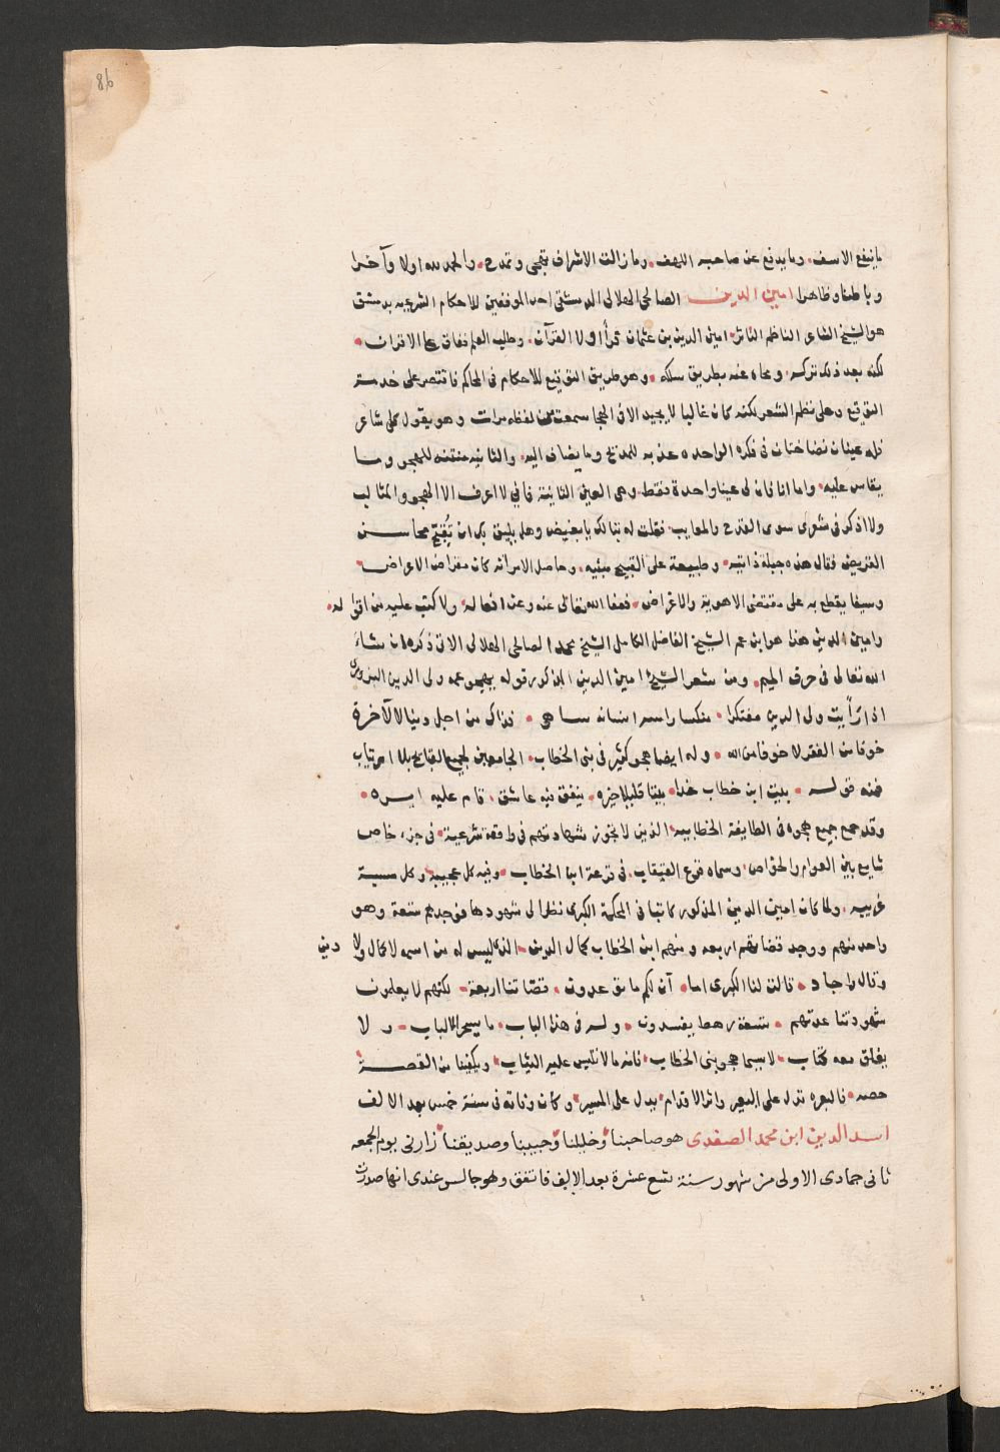 86
ما ينفع الاسف. وما يدفع عن صاحبه اللهف. وما زالت الاشراف تهجى وتمدح. والحمد لله اولا وآخرا
وباطنا وظاهرا امين الدين الصالحى الهلالى الدمشقى احد الموقعين للاحكام الشرعيه بدمشق
هو الشيخ الشاعر الناظم الناثر. امين الدين بن عثمان قرأ اولا القرآن. وطلب العلم ففاق على الاقران.
لكنه بعد ذلك تركه. ومحاه عنه بطريق سلكه. وهو طريق التوقيع للاحكام فى المحاكم فاقتصر على خدمته
التوقيع وعلى نظم الشعر لكنه كان غالبا لا يجيد الا فى الهجا سمعت من لفظه مرات وهو يقول كل شاعر
فله عينان نضاختان فى فكره الواحده عذبه للمديح وما يضاف اليه. والثانيه منتنه للهجو وما
يقاس عليه. واما انا فان لى عينا واحدة فقط. وهى العين الثانية فانى لا اعرف الا الهجو والمثالب
ولا اذكر فى شعرى سوى القدح والمعايب. فقلت له بنا لك يا بغيض وهل يليق بك ان تُقبّح محاسن
القريض فقال هذه جبلة ذاتيه. وطبيعة على القبيح مبنيه. وحاصل الامر انه كان مقراض الاعراض.
وسيفا يقطع به على مقتضى الاهوية والاغراض. فعفا الله تعالى عنه وعن افعاله. ولا كتب عليه من اقواله.
وامين الدين هذا هو ابن عم الشيخ الفاضل الكامل الشيخ محمد الصالحى الهلالى الاتى ذكره ان شاء
الله تعالى فى حرف الميم. ومن شعر الشيخ امين الدين المذكور قوله يهجو عمه ولى الدين
اذا رأيت ولى الدين مفتكرا. منكسا راسه انسانه ساهى. فذاك من اجل دنيا لا لآخرة
خوفا من الفقر لا خوفا من الله. وله ايضا هجو كثير فى بنى الخطاب. الجامعين لجميع القبائح بلا ارتياب
فمنه قوله. بيت ابن خطاب غدا. بيتا قليلا خيره. ينفق فيه عاشق. قام عليه ايره.
وقد جمع جميع هجوه فى الطايفة الخطابيه. الذين لا تجوز شهادتهم فى واقعة شرعية. فى جزء خاص
شايع بين العوام والخواص. وسماه قرع القبقاب. فى قرعة ابنا الخطاب. وفيه كل عجيبه. وكل سبية
غريبه. ولما كان امين الدين المذكور كاتبا فى المحكمة الكبرى نظر الى شهودها فوجدهم تسعة وهو
واحد منهم ووجد قضاتهم اربعه ومنهم ابن الخطاب كمال الدين. الذى ليس له من اسمه لا كمال ولا دين
وقال واجاد. قالت لنا الكبرى اما. آن لكم ما توعدون. قضاتنا اربعة. لكنهم لا يعلمون
شهودنا عدتهم. تسعة رهط يفسدون. وله فى هذا الباب. ما يسحر الالباب. ولا
يغلق معه كتاب. لا سيما هجو بنى الخطاب. فانه ما لا تلبس عليه الثياب. ويكفينا من القصة
حصه. فالبعره تدل على البعير واثر الاقدام. يدل على المسير. وكان وفاته فى سنة خمس بعد الالف
اسد الدين ابن محمد الصفدى هو صاحبنا وخليلنا وحبيبنا وصديقنا زارنى يوم الجمعه
ثانى جمادى الاولى من شهور سنة تسع عشرة بعد الالف فاتفق وهو جالس عندى انها صدرت